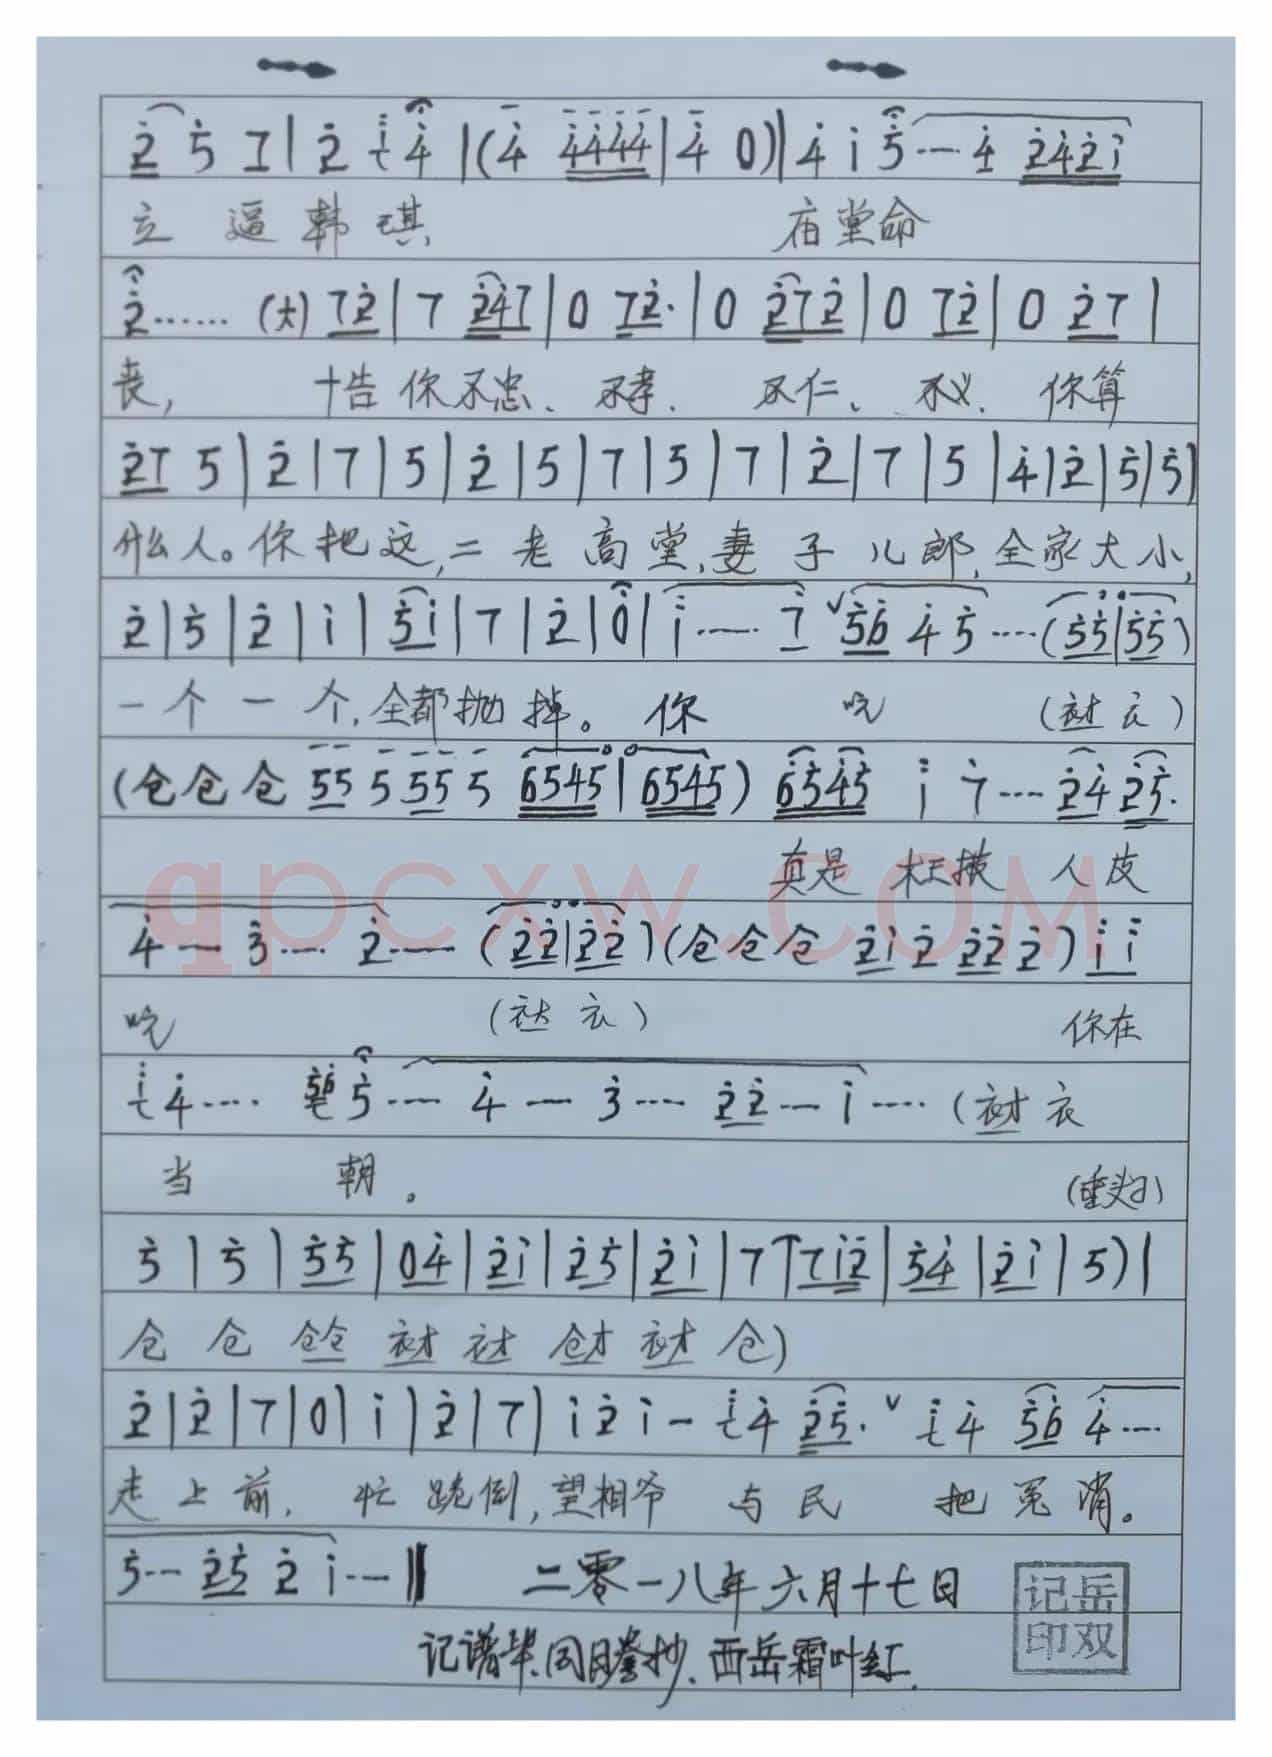 2 5 7 | 2 4 | (4 4444 | 4 0) | 4 i 5 ---- 4 242i
立 逼 韩 琪 庙堂命
2…… (大) 72 | 7 247 | 0 72· | 0 272 | 0 72 | 0 27 |
丧, 十告 你不忠、不孝、不仁、不义、你算
27 5 | 2 | 7 | 5 | 2 | 5 | 7 | 5 | 7 | 2 | 7 | 5 | 4 | 2 | 5 | 5 |
什么人。你把这,二老高堂,妻子儿郎,全家大小,
2 | 5 | 2 | i | 5i | 7 | 2 | 0 | i …… 7 ∨ 56 4 5 …… (55 | 55)
一个一个,全都抛掉。你 吃 (衣)
(仓仓仓 55 5 55 5 6545 | 6545) 6545 i 7 ---- 24 25·
真是 枉披 人皮
4 — 3 …… 2 —— (22 | 22) (仓仓仓 2i 2 22 2) i i
吃 (衣) 你在
4 …… 5 ---- 4 — 3 …… 22 — i …… (衣才 衣
当 朝。 (垂头)
5 | 5 | 55 | 04 | 2i | 25 | 2i | 7 | 7i2 | 54 | 2i | 5) |
仓 仓 仓仓 衣才 衣才 仓才 衣才 仓)
2 | 2 | 7 | 0 | i | 2 | 7 | i 2 i — 4 25· ∨ 4 56 4 ……
走上前, 忙跪倒,望相爷 与民 把冤消。
5 --- 25 2 i --- ‖ 二零一八年六月十七日
记谱毕.同月誊抄.西岳霜叶红.
岳双记印
qpcxw.com